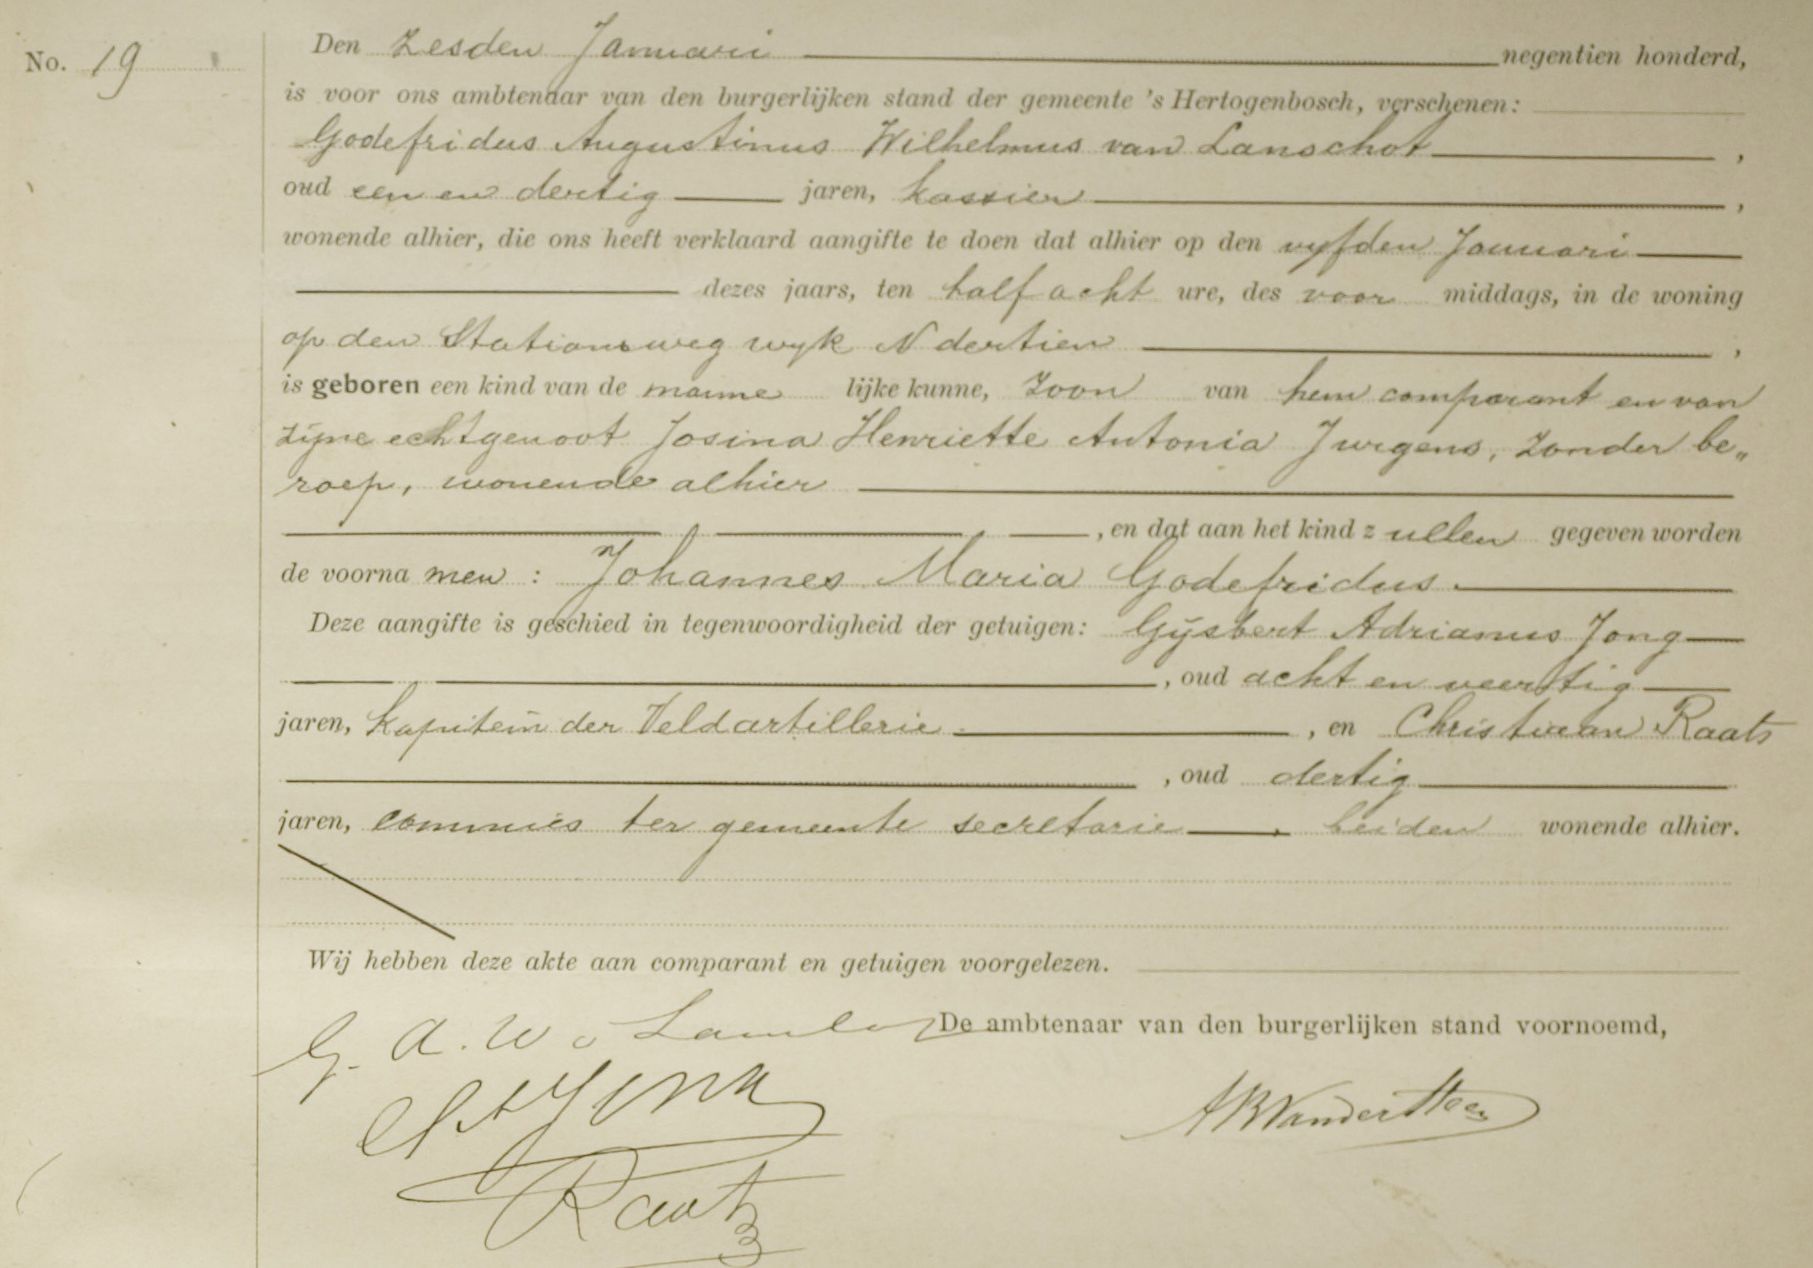 No. 19
Den zesden Januari negentien honderd,
is voor ons ambtenaar van den burgerlijken stand der gemeente 's Hertogenbosch, verschenen:
Godefridus Augustinus Wilhelmus van Lanschot,
oud een en dertig jaren, kassier,
wonende alhier, die ons heeft verklaard aangifte te doen dat alhier op den vyfden Januari
dezes jaars, ten half acht ure, des voor middags, in de woning
op den Stationsweg wyk N dertien,
is geboren een kind van de manne lijke kunne, zoon van hem comparant en van
zijne echtgenoot Josina Henriette Antonia Jurgens, zonder be„
roep, wonende alhier
, en dat aan het kind z ullen gegeven worden
de voorna men : Johannes Maria Godefridus.
Deze aangifte is geschied in tegenwoordigheid der getuigen: Gijsbert Adrianus Jong
, oud acht en veertig
jaren, kapitein der Veldartillerie, en Christiaan Raats
, oud dertig
jaren, commies ter gemeente secretarie, beiden wonende alhier.
Wij hebben deze akte aan comparant en getuigen voorgelezen.
De ambtenaar van den burgerlijken stand voornoemd,
G. A. W. v Lanschot
Raats